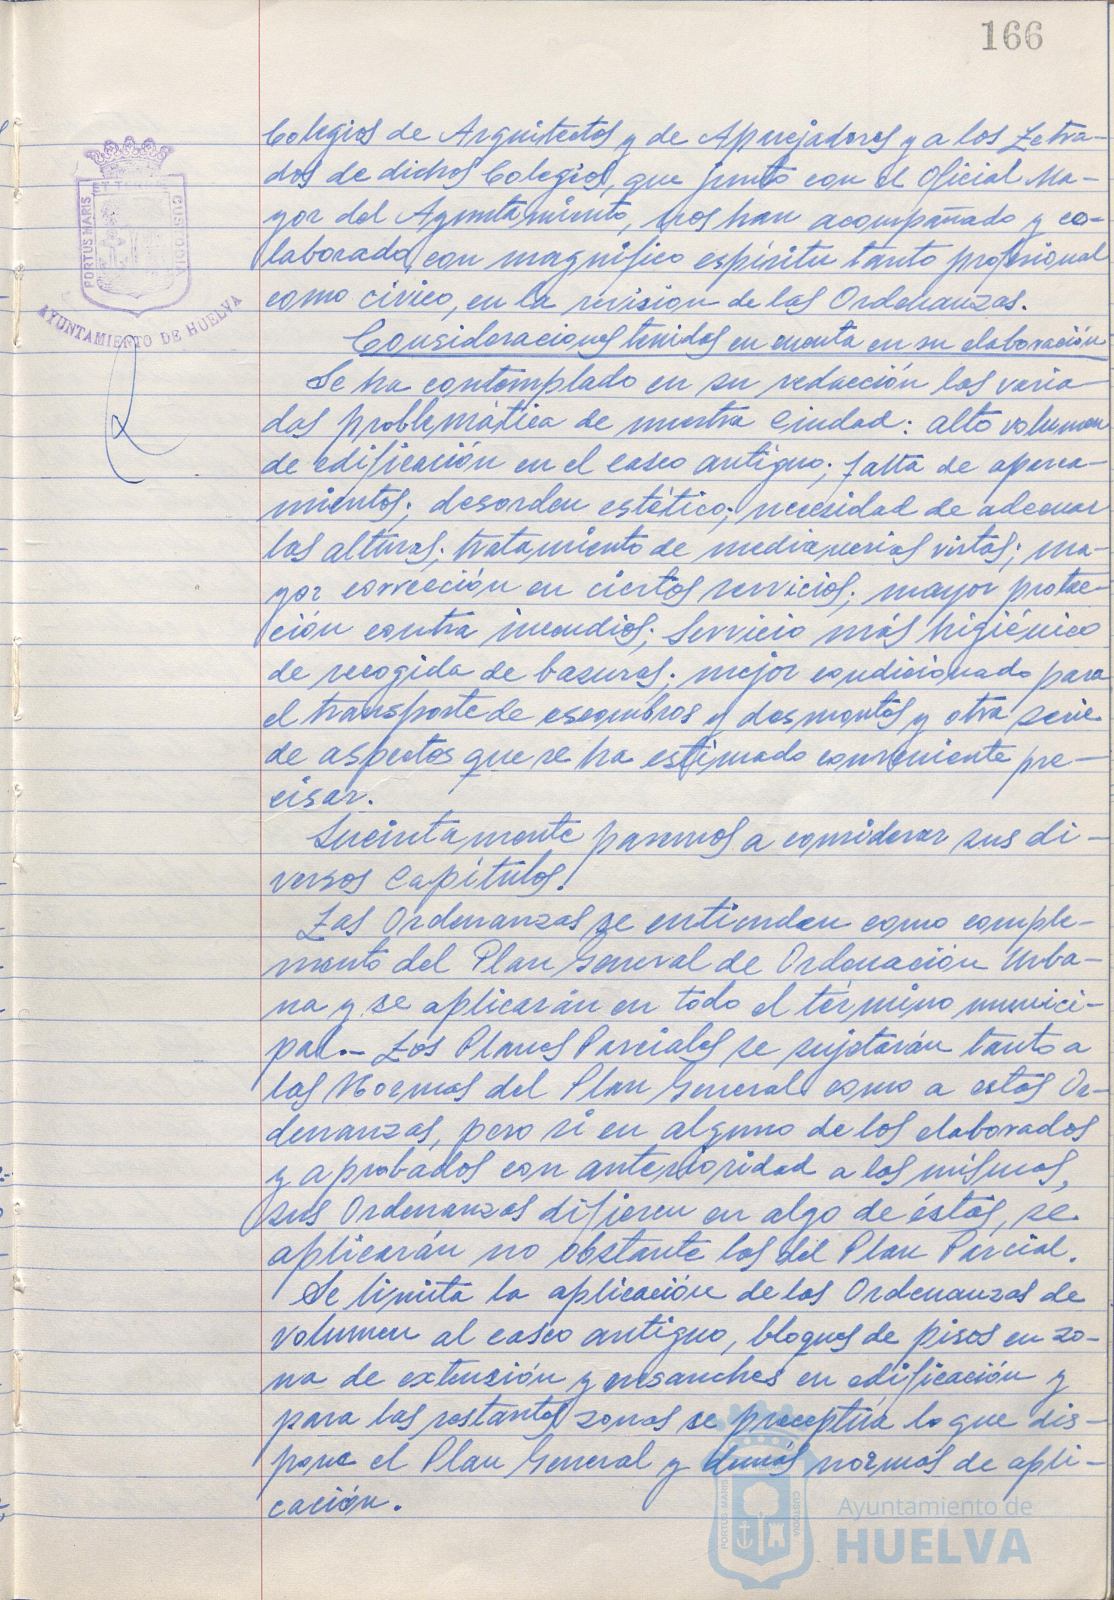 166
Colegios de Arquitectos y de Aparejadores y a los Letra-
dos de dichos Colegios, que junto con el Oficial Ma-
yor del Ayuntamiento, nos han acompañado y co-
laborado, con magnífico espíritu tanto profesional
como cívico, en la revisión de las Ordenanzas.
PORTUS MARIS CUSTODIA
AYUNTAMIENTO DE HUELVA
Consideraciones tenidas en cuenta en su elaboración
Se ha contemplado en su redacción las varia-
das problemática de nuestra Ciudad: alto volumen
de edificación en el casco antiguo; falta de aparca-
mientos; desorden estético; necesidad de adecuar
las alturas; tratamiento de medianerias vistas; ma-
yor corrección en ciertos servicios; mayor protec-
ción contra incendios; Servicio más higiénico
de recogida de basuras; mejor condicionado para
el transporte de escombros y desmontes y otra serie
de aspectos que se ha estimado conveniente pre-
cisar.
Sucintamente pasemos a considerar sus di-
versos Capítulos:
Las Ordenanzas se entienden como comple-
mento del Plan General de Ordenación Urba-
na y se aplicarán en todo el término munici-
pal.- Los Planes Parciales se sujetarán tanto a
las Normas del Plan General como a estas Or-
denanzas, pero si en alguno de los elaborados
y aprobados con anterioridad a las mismas,
sus Ordenanzas difieren en algo de éstas, se
aplicarán no obstante las del Plan Parcial.
Se limita la aplicación de las Ordenanzas de
volumen al casco antiguo, bloques de pisos en zo-
na de extensión y ensanches en edificación y
para las restantes zonas se preceptúa lo que dis-
pone el Plan General y demás normas de apli-
cación.
PORTUS MARIS CUSTODIA
Ayuntamiento de
HUELVA